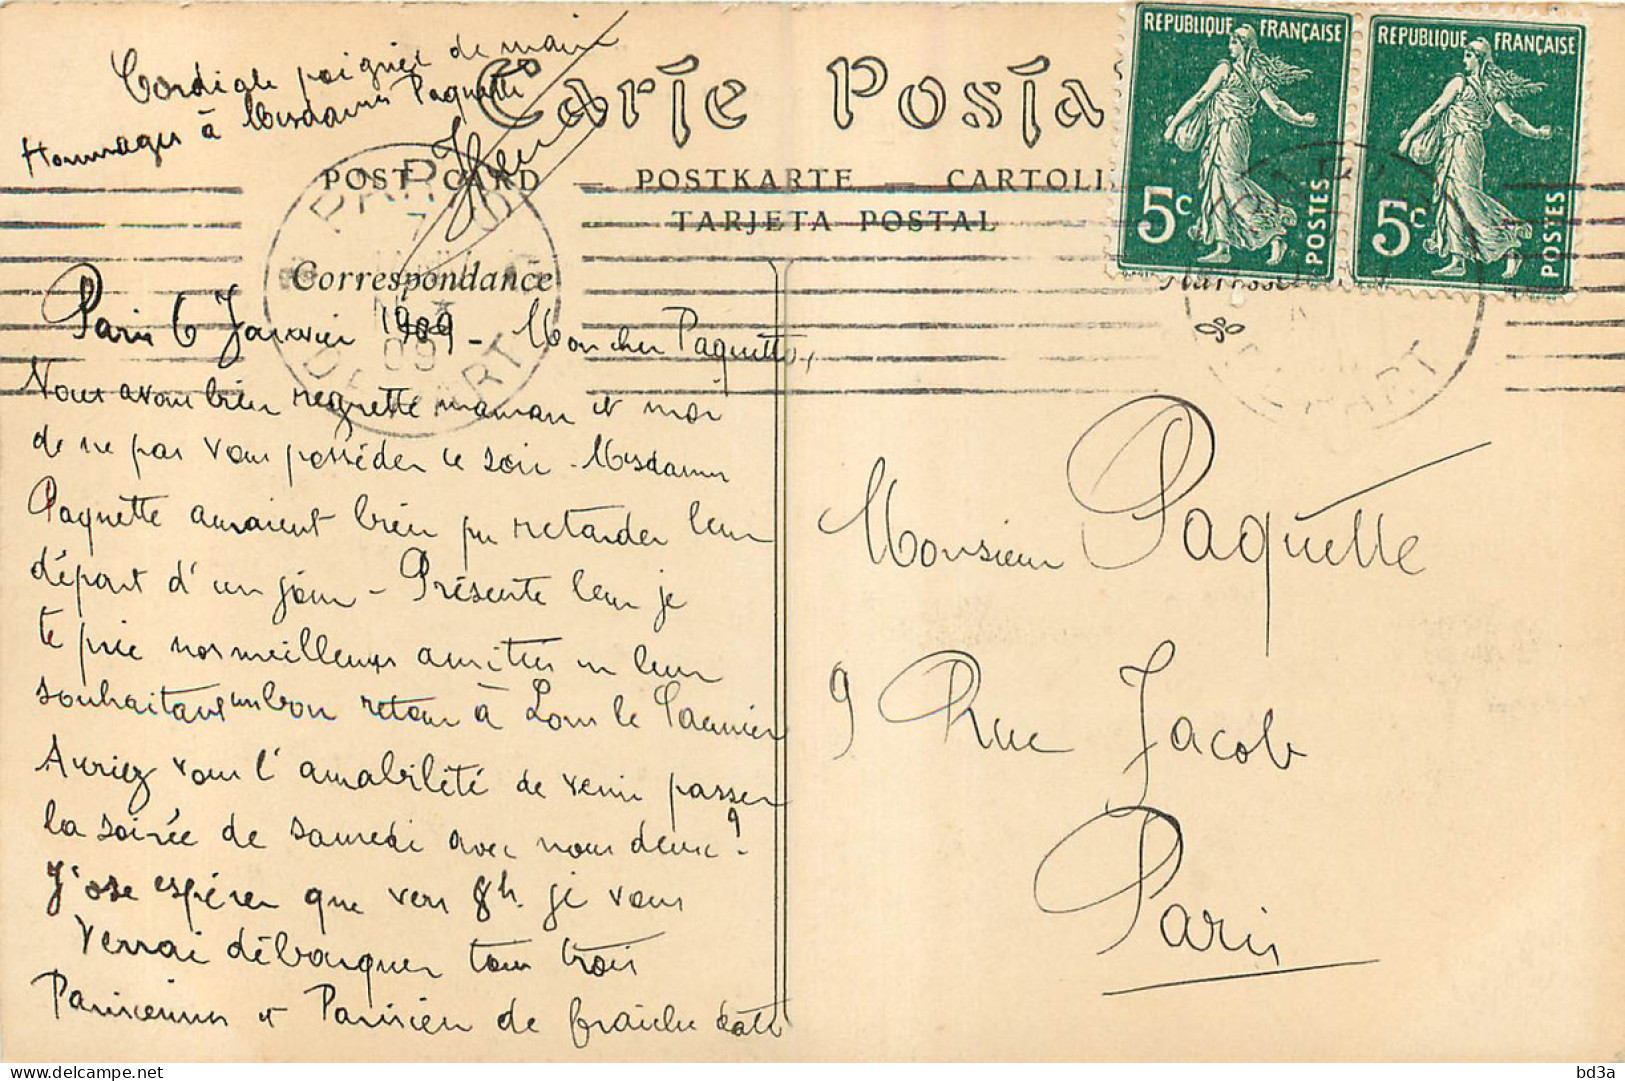 Cordiale poignée de main
Hommages à Mesdames Paquette
Henri
Carte Posta
POST CARD — POSTKARTE — CARTOLI
TARJETA POSTAL
Correspondance
REPUBLIQUE FRANÇAISE
5c POSTES
REPUBLIQUE FRANÇAISE
5c POSTES
PARIS
DEPART
09
Paris 6 Janvier 1909 - Mon cher Paquette,
Nous avons bien regretté maman et moi
de ne pas vous posséder ce soir - Mesdames
Paquette auraient bien pu retarder leur
départ d'un jour - Présente leur je
te prie nos meilleures amitiés en leur
souhaitant un bon retour à Lons le Saunier
Auriez vous l'amabilité de venir passer
la soirée de samedi avec nous deux ?
J'ose espérer que vers 8h. je vous
verrai débarquer tous trois
Parisiennes et Parisien de fraîche date
Monsieur Paquette
9 Rue Jacob
Paris
bd3a